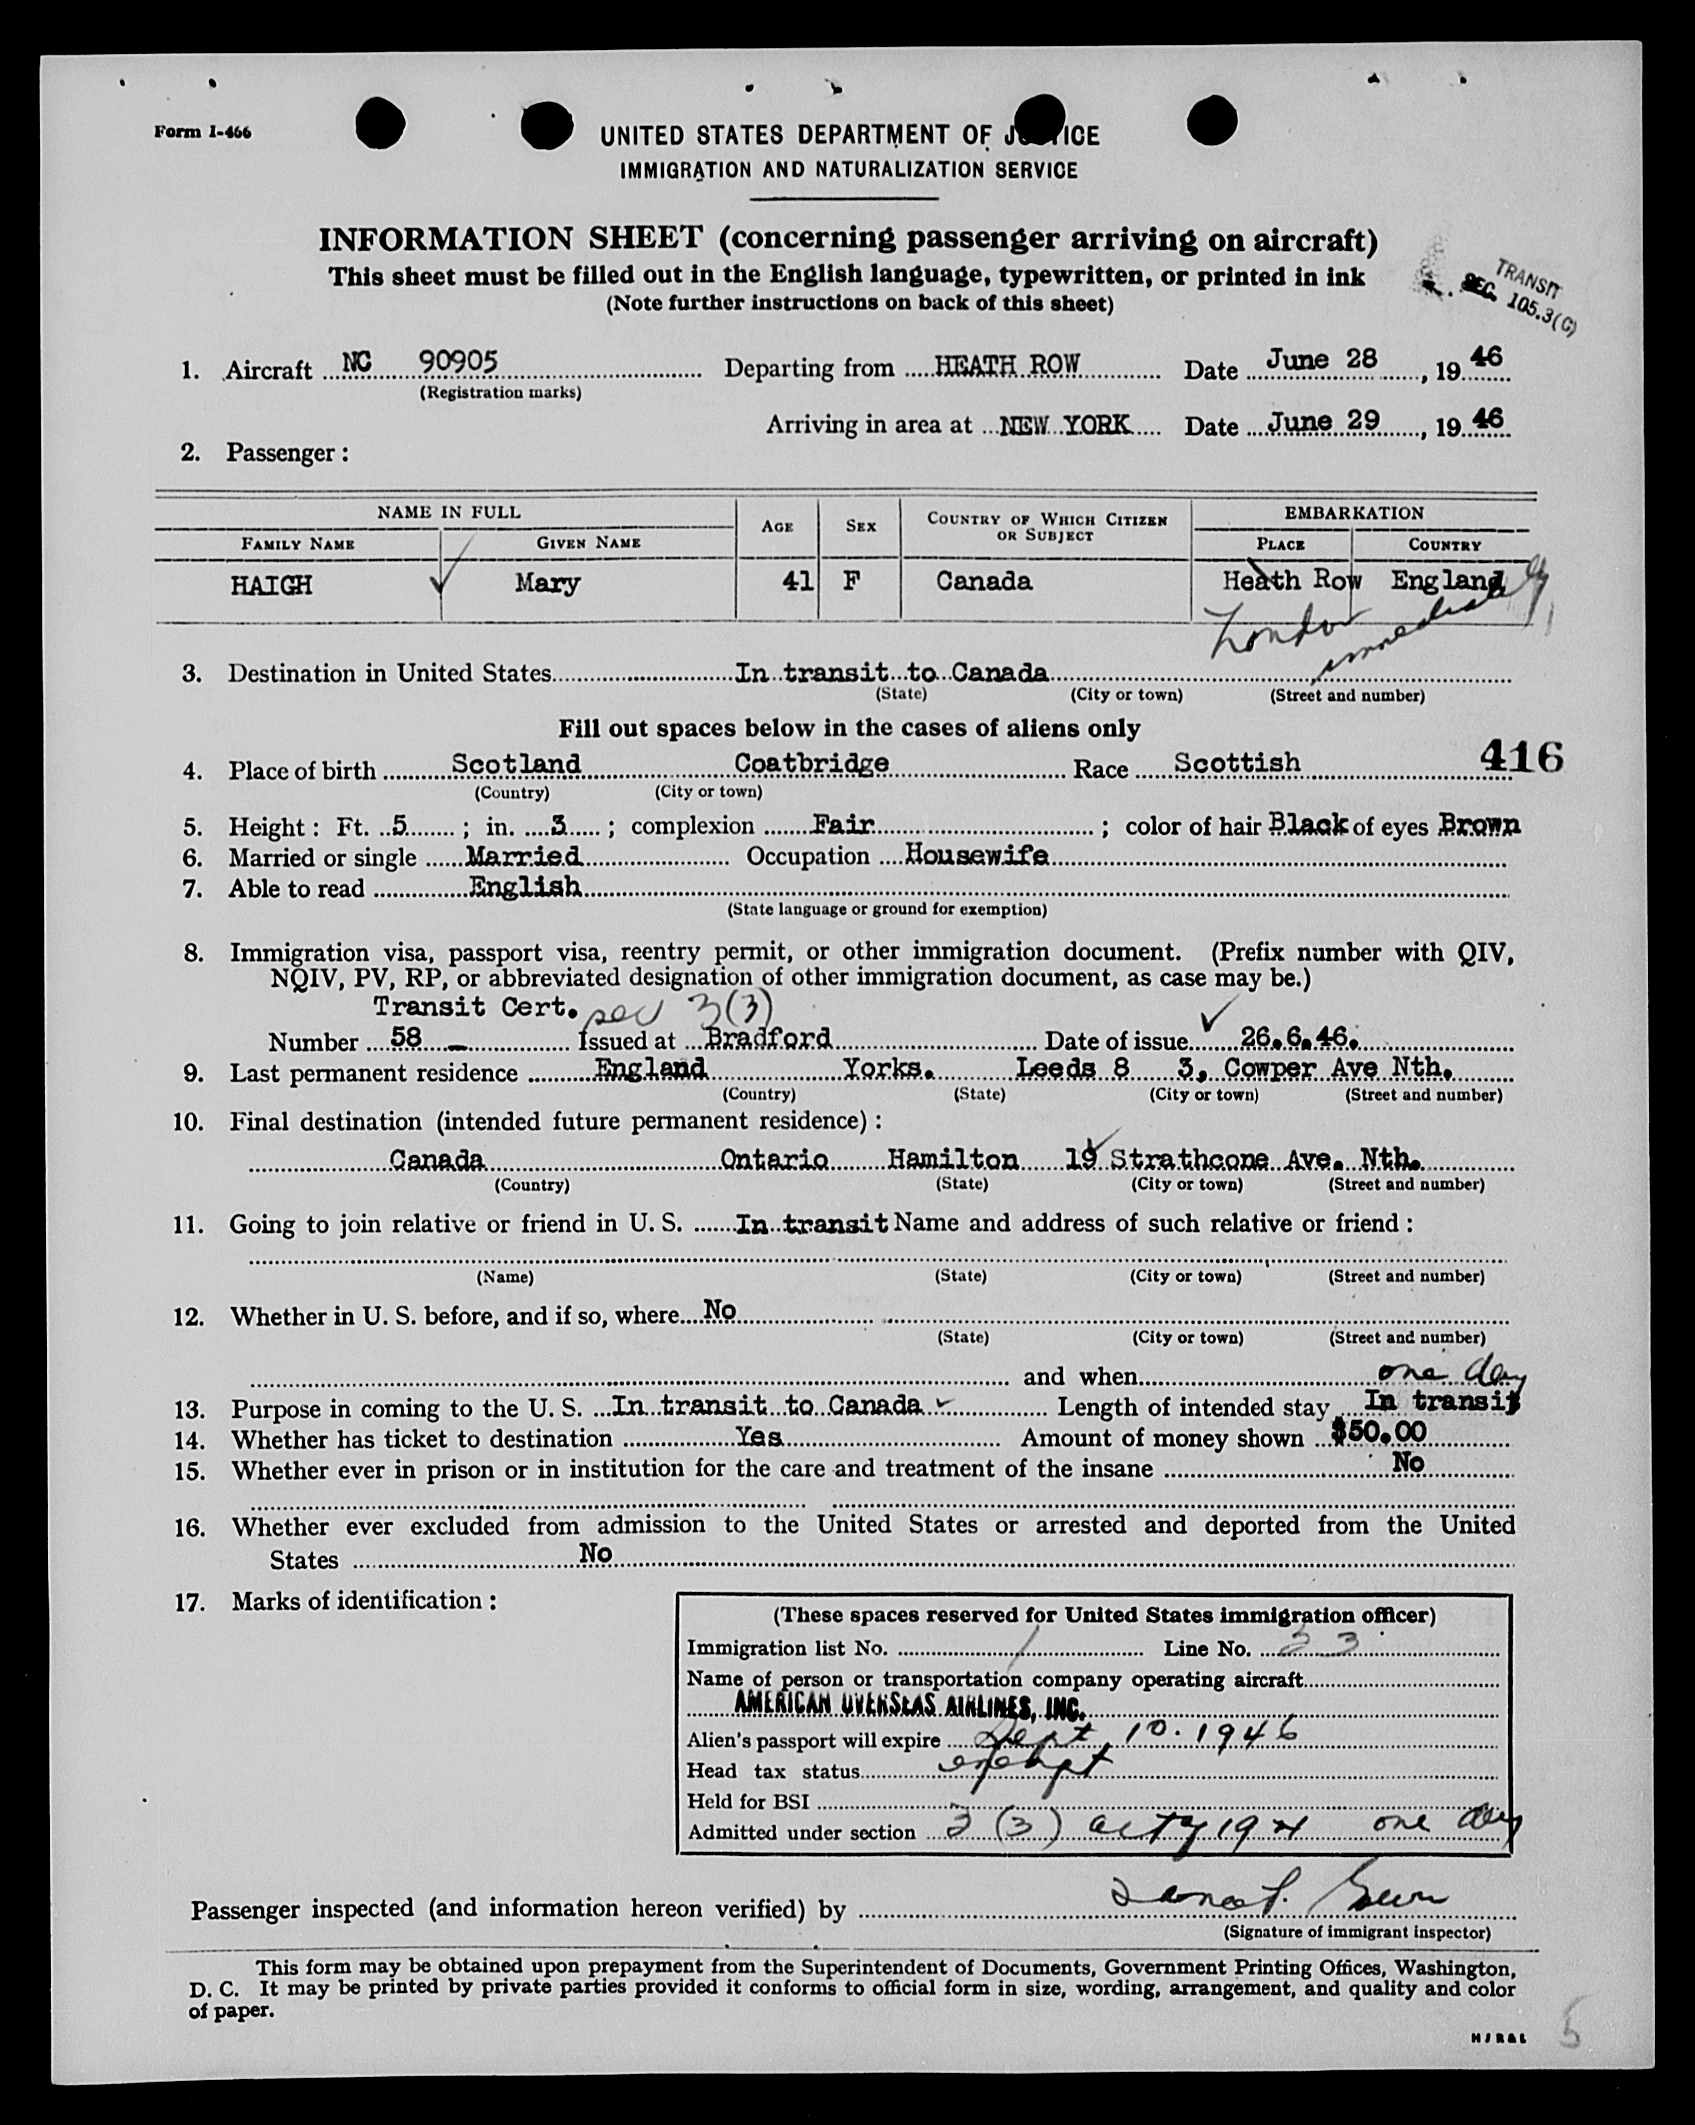 Form I-466
UNITED STATES DEPARTMENT OF JUSTICE
IMMIGRATION AND NATURALIZATION SERVICE
INFORMATION SHEET (concerning passenger arriving on aircraft)
This sheet must be filled out in the English language, typewritten, or printed in ink
(Note further instructions on back of this sheet)
TRANSIT
SEC. 105.3(G)
1. Aircraft NC 90905 Departing from HEATH ROW Date June 28, 1946
(Registration marks)
Arriving in area at NEW YORK Date June 29, 1946
2. Passenger:
NAME IN FULL AGE SEX COUNTRY OF WHICH CITIZEN OR SUBJECT EMBARKATION
FAMILY NAME GIVEN NAME PLACE COUNTRY
HAIGH Mary 41 F Canada Heath Row England
London immediately
3. Destination in United States In transit to Canada
(State) (City or town) (Street and number)
Fill out spaces below in the cases of aliens only
416
4. Place of birth Scotland Coatbridge Race Scottish
(Country) (City or town)
5. Height: Ft. 5; in. 3; complexion Fair; color of hair Black of eyes Brown
6. Married or single Married Occupation Housewife
7. Able to read English
(State language or ground for exemption)
8. Immigration visa, passport visa, reentry permit, or other immigration document. (Prefix number with QIV,
NQIV, PV, RP, or abbreviated designation of other immigration document, as case may be.)
Transit Cert. sec 3(3)
Number 58 Issued at Bradford Date of issue 26.6.46.
9. Last permanent residence England Yorks. Leeds 8 3, Cowper Ave Nth.
(Country) (State) (City or town) (Street and number)
10. Final destination (intended future permanent residence):
Canada Ontario Hamilton 19 Strathcone Ave. Nth.
(Country) (State) (City or town) (Street and number)
11. Going to join relative or friend in U. S. In transit Name and address of such relative or friend:
(Name) (State) (City or town) (Street and number)
12. Whether in U. S. before, and if so, where No
(State) (City or town) (Street and number)
and when one day
13. Purpose in coming to the U. S. In transit to Canada Length of intended stay In transit
14. Whether has ticket to destination Yes Amount of money shown $50.00
15. Whether ever in prison or in institution for the care and treatment of the insane No
16. Whether ever excluded from admission to the United States or arrested and deported from the United
States No
17. Marks of identification:
(These spaces reserved for United States immigration officer)
Immigration list No. 1 Line No. 23
Name of person or transportation company operating aircraft
AMERICAN OVERSEAS AIRLINES, INC.
Alien's passport will expire Sept 10. 1946
Head tax status exempt
Held for BSI
Admitted under section 3 (3) act of 1924 one day
Passenger inspected (and information hereon verified) by
(Signature of immigrant inspector)
This form may be obtained upon prepayment from the Superintendent of Documents, Government Printing Offices, Washington,
D. C. It may be printed by private parties provided it conforms to official form in size, wording, arrangement, and quality and color
of paper.
5